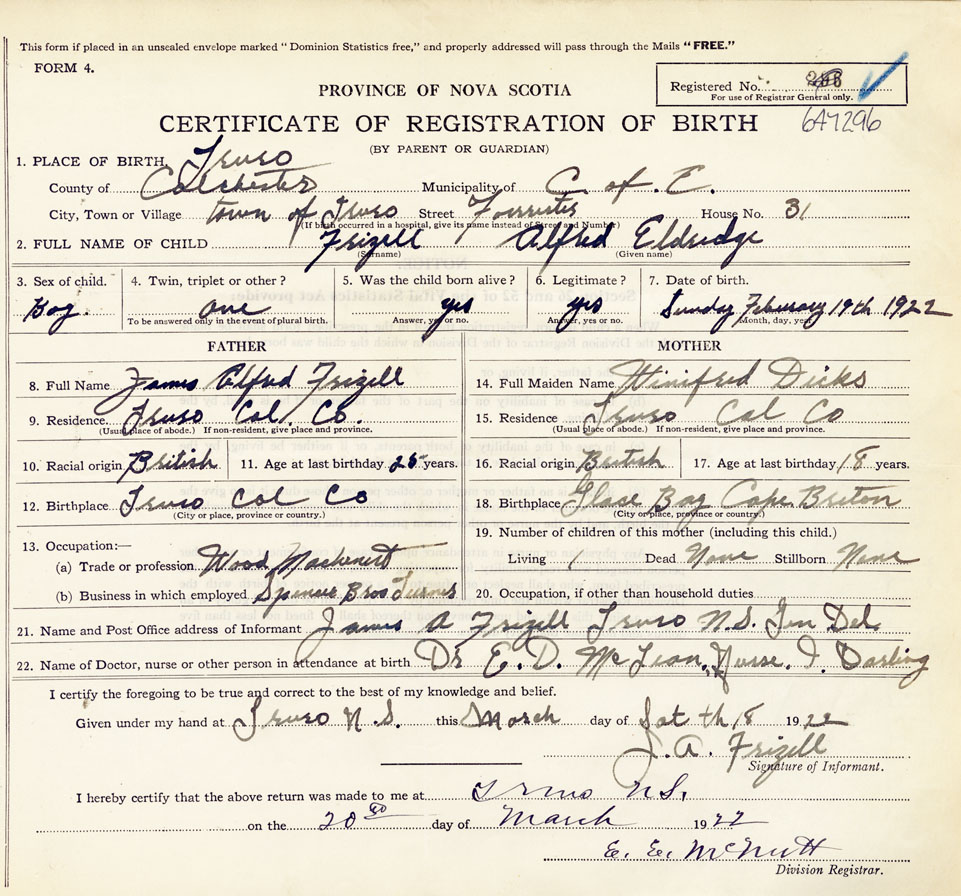 This form if placed in an unsealed envelope marked "Dominion Statistics free," and properly addressed will pass through the Mails "FREE."
FORM 4.
Registered No.
For use of Registrar General only.
PROVINCE OF NOVA SCOTIA
647296
CERTIFICATE OF REGISTRATION OF BIRTH
(BY PARENT OR GUARDIAN)
1. PLACE OF BIRTH, Truro
County of Colchester Municipality of C of. E.
City, Town or Village town of Truro Street Forrester House No. 31
(If birth occurred in a hospital, give its name instead of Street and Number)
2. FULL NAME OF CHILD Frizell Alfred Eldredge
(Surname) (Given name)
3. Sex of child. 4. Twin, triplet or other? 5. Was the child born alive? 6. Legitimate? 7. Date of birth.
Boy one yes yes Sunday February 19th 1922
To be answered only in the event of plural birth. Answer, yes or no. Answer, yes or no. Month, day, year
FATHER MOTHER
8. Full Name James Alfred Frizell 14. Full Maiden Name Winifred Dicks
9. Residence Truro Col. Co. 15. Residence Truro Col Co
(Usual place of abode.) If non-resident, give place and province. (Usual place of abode.) If non-resident, give place and province.
10. Racial origin British 11. Age at last birthday 25 years. 16. Racial origin British 17. Age at last birthday 18 years.
12. Birthplace Truro Col Co 18. Birthplace Glace Bay Cape Briton
(City or place, province or country.) (City or place, province or country.)
13. Occupation:— 19. Number of children of this mother (including this child.)
(a) Trade or profession Wood Machenest Living 1 Dead None Stillborn None
(b) Business in which employed Spencer Bros Turner 20. Occupation, if other than household duties
21. Name and Post Office address of Informant James A Frizell Truro N.S. Gen Del.
22. Name of Doctor, nurse or other person in attendance at birth Dr E. D. McLean, Nurse. I. Darling
I certify the foregoing to be true and correct to the best of my knowledge and belief.
Given under my hand at Truro N.S. this March day of Sat th 18 1922
J. A. Frizell
Signature of Informant.
I hereby certify that the above return was made to me at Truro N.S.
on the 20 day of March 1922
E. E. McNutt
Division Registrar.